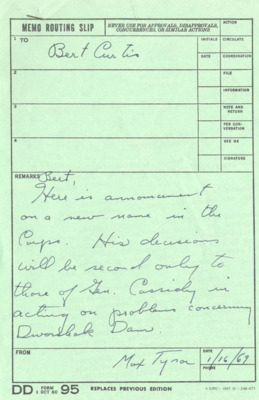 MEMO ROUTING SLIP
NEVER USE FOR APPROVALS, DISAPPROVALS, CONCURRENCES, OR SIMILAR ACTIONS
ACTION
1 TO
Bert Curtis
INITIALS
CIRCULATE
DATE
COORDINATION
2
FILE
INFORMATION
3
NOTE AND RETURN
PER CONVERSATION
4
SEE ME
SIGNATURE
REMARKS Bert,
Here is announcement
on a new name in the
Corps. His decisions
will be second only to
those of Gen. Cassidy in
acting on problems concerning
Dworshak Dam.
FROM
Max Tyson
DATE
1/16/69
PHONE
DD FORM 1 OCT 60 95 REPLACES PREVIOUS EDITION